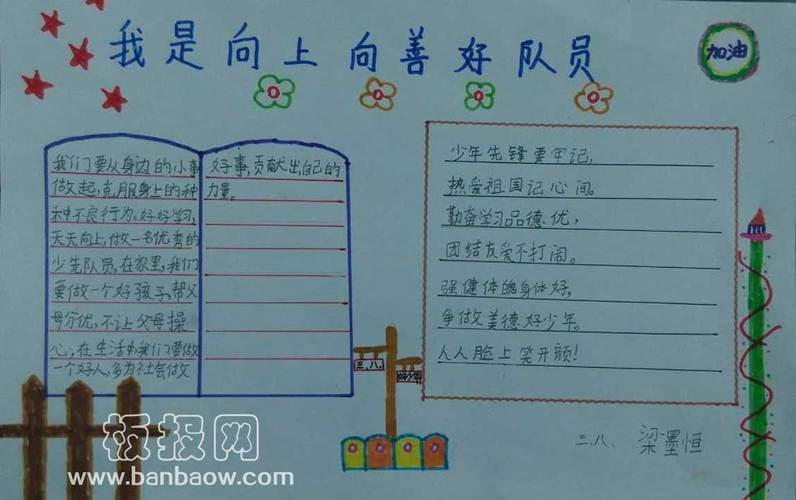 我是向上向善好队员
加油
我们要从身边的小事
做起,克服身上的种
种不良行为。好好学习,
天天向上,做一名优秀的
少先队员,在家里,我们
要做一个好孩子,帮父
母分忧,不让父母操
心;在生活中我们要做
一个好人,多为社会做
好事,贡献出自己的
力量。
少年先锋要牢记,
热爱祖国记心间。
勤奋学习品德优,
团结友爱不打闹。
强健体魄身体好,
争做美德好少年。
人人脸上笑开颜!
三.八.
三.八、 梁墨恒
板报网
www.banbaow.com